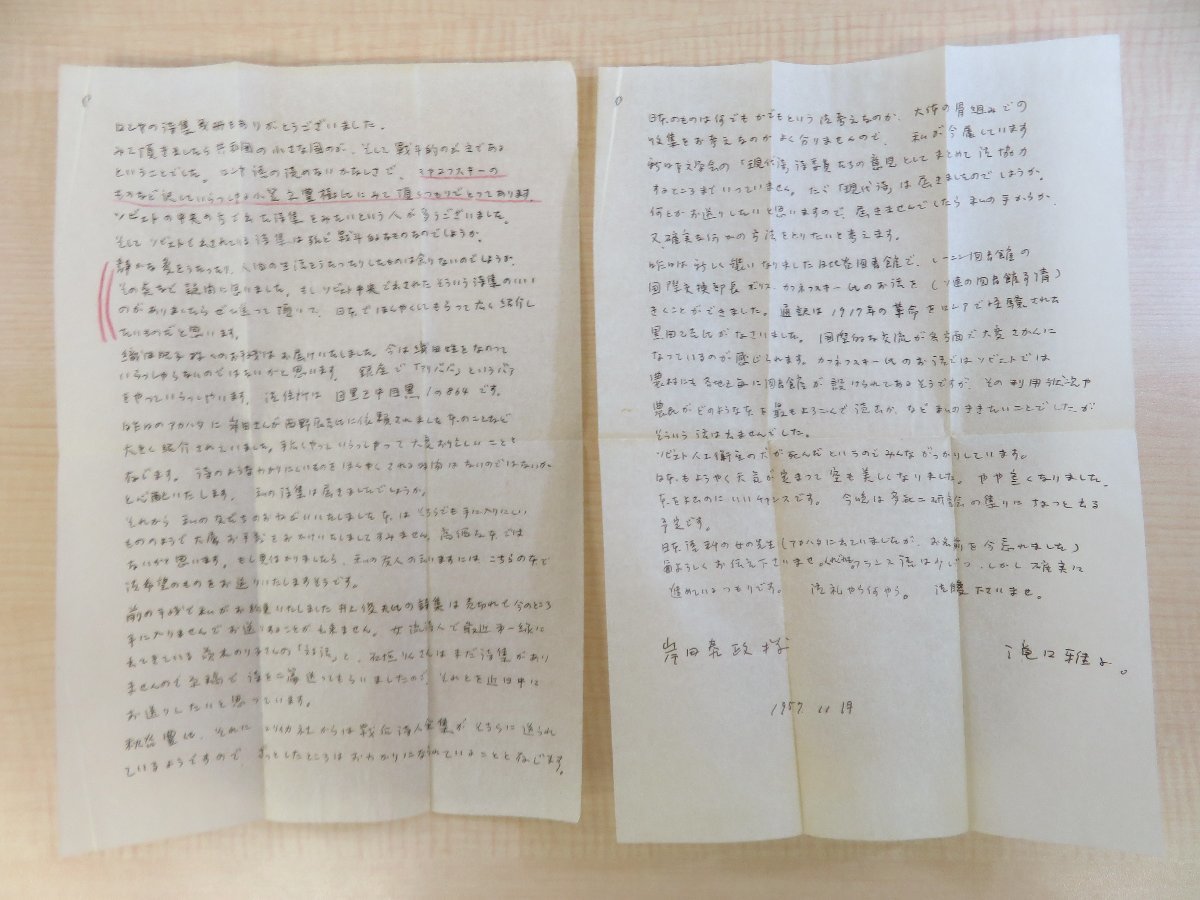 ロシヤの詩集数冊をありがとうございました。
みて頂きましたら共和国の小さな国のが、そして戦斗的のが主である
ということでした。ロシヤ語の読めないかなしさで、
ものなど訳していらっしゃる 氏にみて頂くつもりでとってあります。
ソビエトの中央の方で出た詩集をみたいという人が多うございました。
そしてソビエトで出されている詩集は殆ど戦斗的なものなのでしょうか。
静かな愛をうたったり、人間の生活をうたったりしたものは余りないのでしょうか。
その点など疑問に思いました。もしソビエト中央で出されたそういう詩集のいい
のがありましたらぜひ送って頂いて、日本でほんやくしてもらって広く紹介し
たいものだと思います。
様へのお手紙はお届けいたしました。今は 織田姓をなのって
いらっしゃらないのではないかと思います。銀座で「アリババ」というバア
をやっていらっしゃいます。御住所は目黒区中目黒1の864です。
昨日のアカハタに岸田さんが西野辰吉氏に依頼されました本のことなど
大きく紹介されていました。 やっていらっしゃって大変おうれしいことと
存じます。詩のようなわかりにくいものをほんやくされる時間はないのではないか
と心配いたします。私の詩集は届きましたでしょうか。
それから私の友だちがおねがいいたしました本は そちらでも手に入りにくい
もののようで大層お手数をおかけいたしましてすみません。高価な本では
ないかと思います。もし見つかりましたら、私の友人の言いますには、こちらの本で
御希望のものをお送りいたしますそうです。
前の手紙で私がお約束いたしました井上俊夫氏の詩集は売切れで今のところ
手に入りませんでお送りすることが出来ません。女流詩人で最近第一線に
出てきている茨木のり子さんの「対話」と、石垣りんさんはまだ詩集があり
ませんので原稿で詩を二篇送ってもらいましたので、それとを近日中に
お送りしたいと思っています。
秋谷豊氏、それにユリイカ社からは戦后詩人全集がそちらに送られ
ているようですので、ざっとしたところはおわかりになられていることと存じます。
日本のものは何でもかでもという御考えなのか、大体の骨組みでの
収集をお考えなのかよく分りませんので、私が今属しています
新日本文学会の「現代詩」 委員たちの意見としてまとめて御協力
するところまでいっていません。ただ「現代詩」は届きましたのでしょうか。
何とかお送りしたいと思いますので、届きませんでしたら私の手からか、
又確実な何かの方法をとりたいと考えます。
昨日は新しく 日比谷図書館で、レーニン図書館の
国際交換部長ボリス・カネフスキー氏のお話を(ソ連の図書館事情)
きくことができました。通訳は1917年の革命をロシアで経験された
黒田乙吉氏がなさいました。国際的な交流が各方面で大変さかんに
なっているのが感じられます。カネフスキー氏のお話ではソビエトでは
農村にも各地区毎に図書館が設けられてあるそうですが、その利用状況や
農民がどのような本を最もよろこんで読むか、など私のききたいことでしたが
そういう話は出ませんでした。
ソビエト人工衛星の犬が死んだというのでみんながっかりしています。
日本もようやく天気が定まって空も美しくなりました。やや寒くなりました。
本をよむのにいいチャンスです。今晩は多喜二研究会の集りにちょっと出る
予定です。
日本語科の女の先生(アカハタに出ていましたが、お名前を今忘れました)
にもよろしくお伝え下さいませ。 フランス語は少しずつ、しかし確実に
進めているつもりです。御礼やら何やら。 ませ。
岸田泰政様
滝口雅子。
1957 11 19